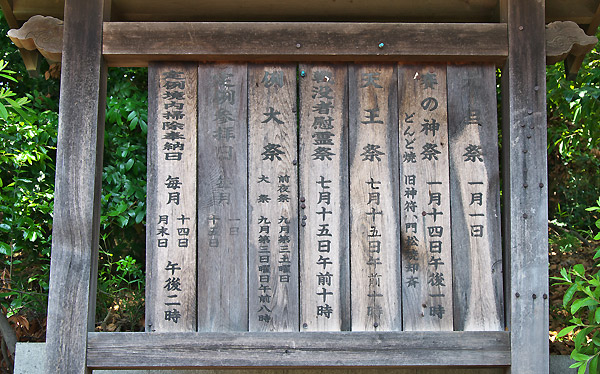 旦祭 一月一日
の神祭 一月十四日午後二時
どんど焼 旧神符、門松焼却斉
天王祭 七月十五日午前十時
戦没者慰霊祭 七月十五日午前十時
例大祭
前夜祭 九月第三土曜日
大祭 九月第三日曜日午前八時
定例参拝日 毎月 十五日
定例境内掃除奉納日 毎月 十四日 午後二時
月末日